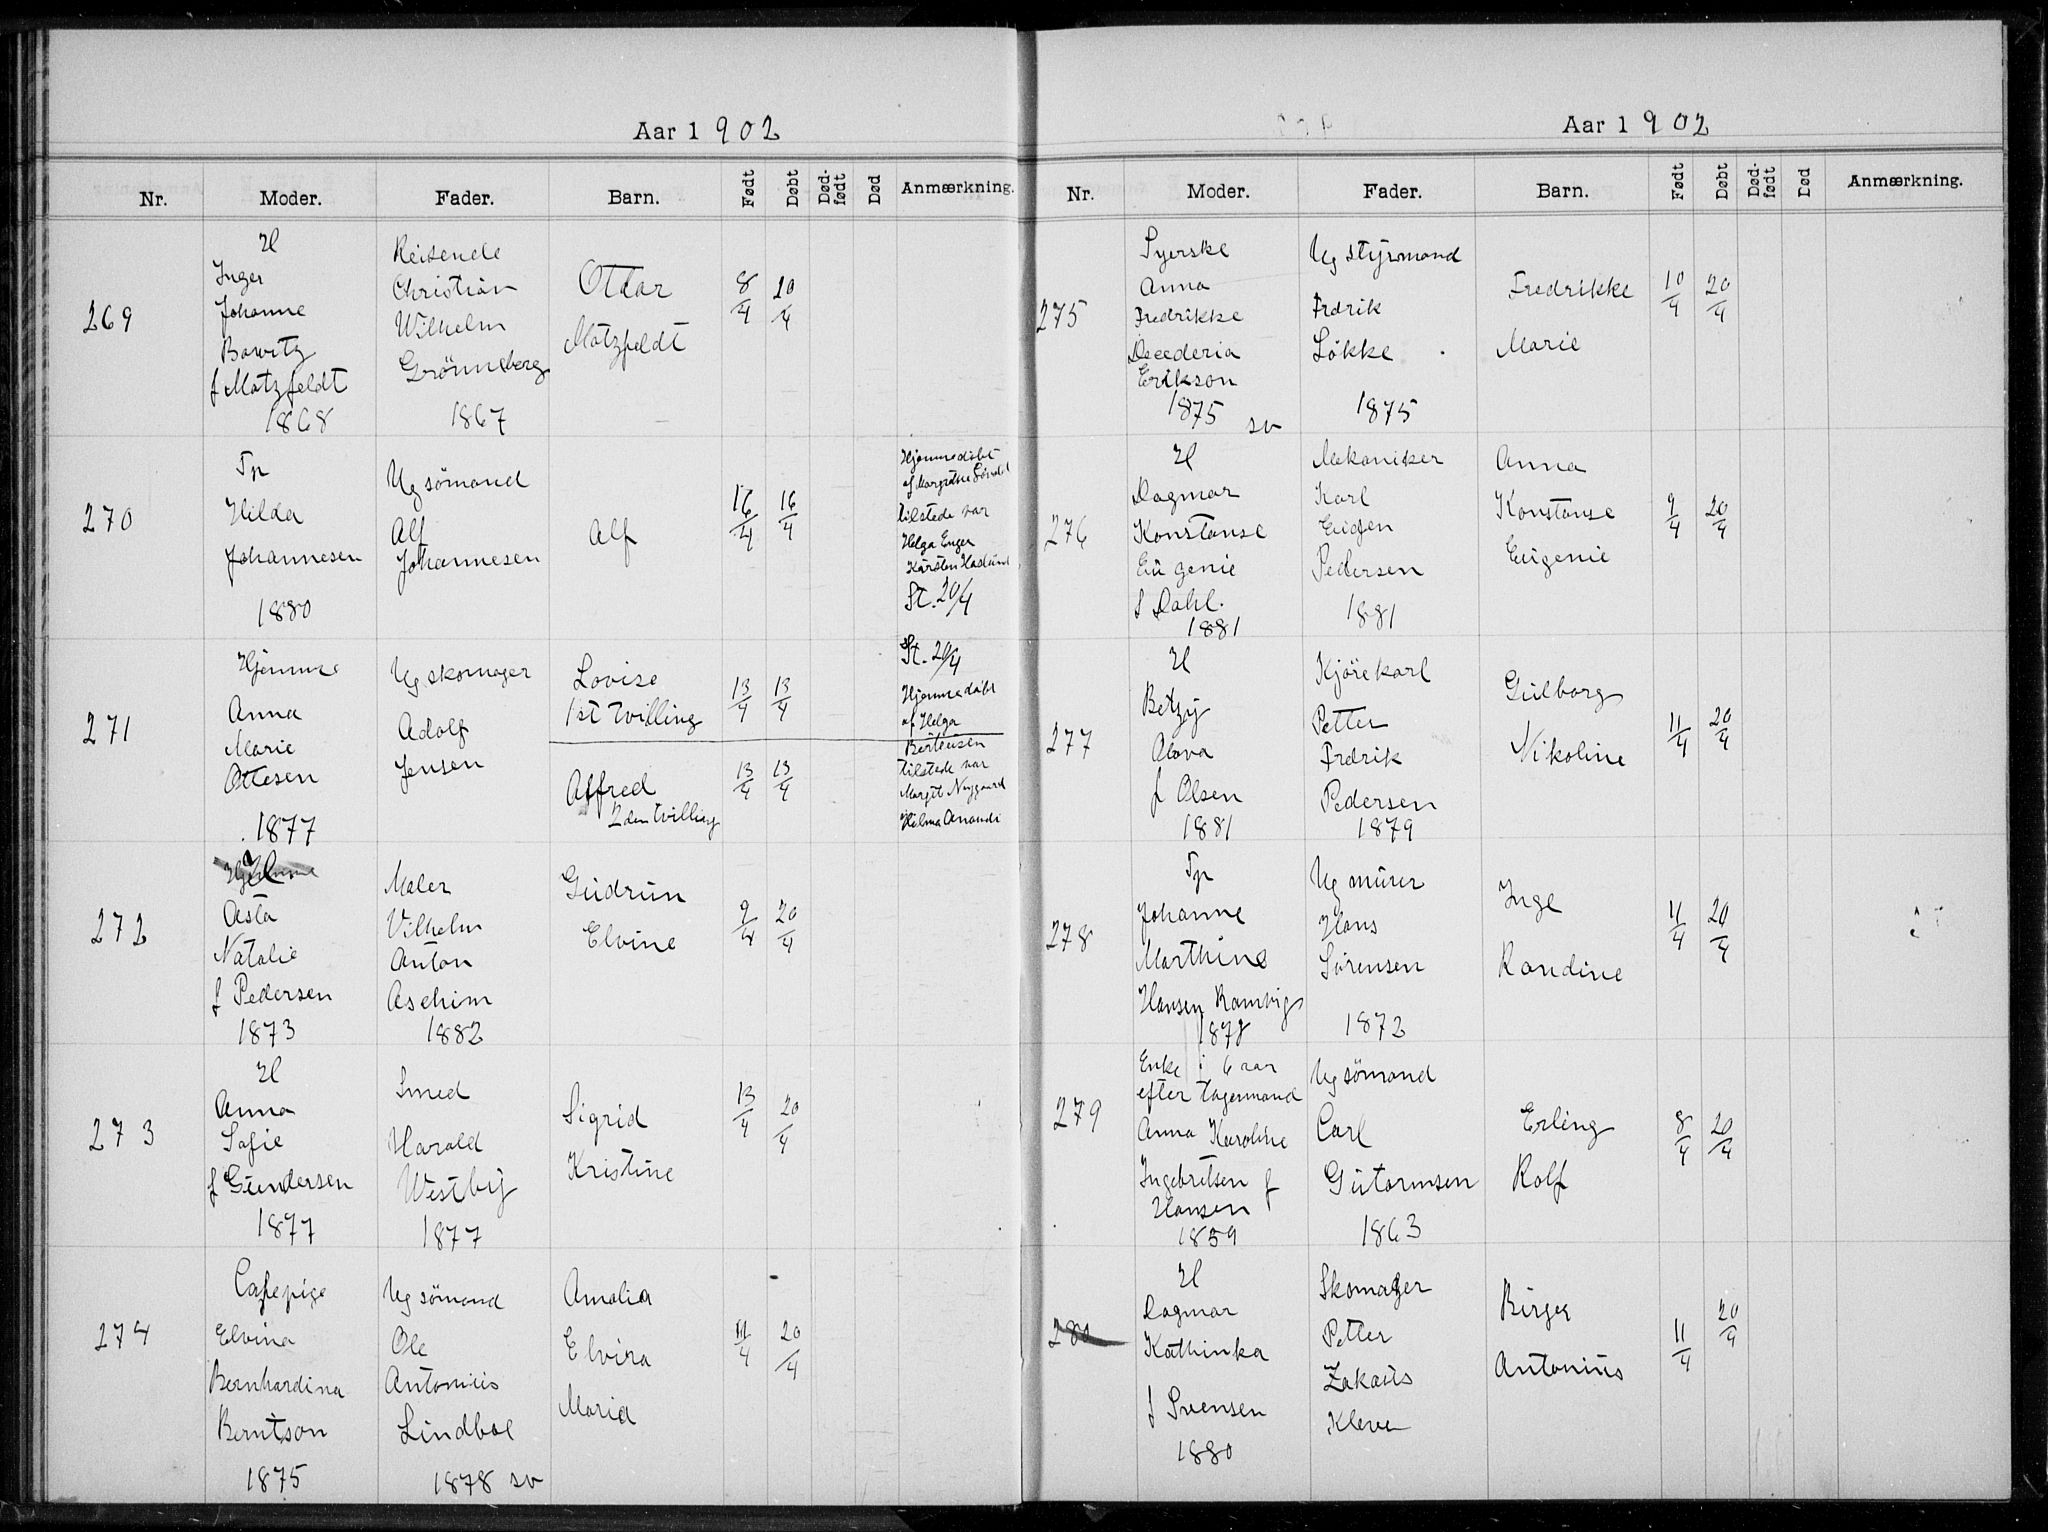 Aar 1902
Nr.
Moder.
Fader.
Barn.
Født
Døbt
Død-født
Død
Anmærkning.
269
H
Inger
Johanne
Bowitz
f Motzfeldt
1868
Reisende
Christian
Wilhelm
Grönneberg
1867
Ottar
Motzfeldt
8/4
20/4
270
Tp
Hilda
Johannesen
1880
Ug sömand
Alf
Johannesen
Alf
16/4
16/4
Hjemmedöbt
af Margrethe
tilstede var
Helga Enger
Karsten Haslund
St. 20/4
271
Hjemme
Anna
Marie
Ottesen
1877
Ug skomager
Adolf
Jensen
Lovise
1st tvilling
13/4
13/4
Alfred
2den tvilling
13/4
13/4
St. 20/4
Hjemmedöbt
af Helga
Berteusen
tilstede var
Margit Nygaard
Hilma
272
H
Asta
Natalie
f Pedersen
1873
Maler
Vilhelm
Anton
Aschim
1882
Gudrun
Elvine
9/4
20/4
273
H
Anna
Sofie
f Gundersen
1877
Smed
Harald
Westby
1877
Sigrid
Kristine
13/4
20/4
274
Cafepige
Elvina
Bernhardina
Berntson
1875
Ug sömand
Ole
Antonius
Lindboe
1878 sv
Amalia
Elvira
Maria
11/4
20/4
Aar 1902
Nr.
Moder.
Fader.
Barn.
Født
Døbt
Død-født
Død
Anmærkning.
275
Syerske
Anna
Fredrikke
Erikson
1875 sv
Ug styrmand
Frdrik
Løkke
1875
Fredrikke
Marie
10/4
20/4
276
H
Dagmar
Konstanse
Eugenie
f Dahl.
1881
Mekaniker
Karl
Eugen
Pedersen
1881
Anna
Konstanse
Eugenie
9/4
20/4
277
H
Betzy
Alova
f Olsen
1881
Kjörekarl
Petter
Frdrik
Pedersen
1879
Gulborg
Nikoline
11/4
20/4
278
Tp
Johanne
Marthine
Hansen Ramvig
1878
Ug murer
Hans
Sörensen
1872
Inge
Randine
11/4
20/4
279
Enke i 6 aar
efter tagermand
Anna Karoline
Ingebretsen f
Hansen
1859
Ug sömand
Carl
Gutormsen
1863
Erling
Rolf
8/4
20/4
280
H
Dagmar
Kathinka
f Svensen
1880
Skomager
Petter
Zakaus
Kleven
Birger
Antonius
11/4
20/4